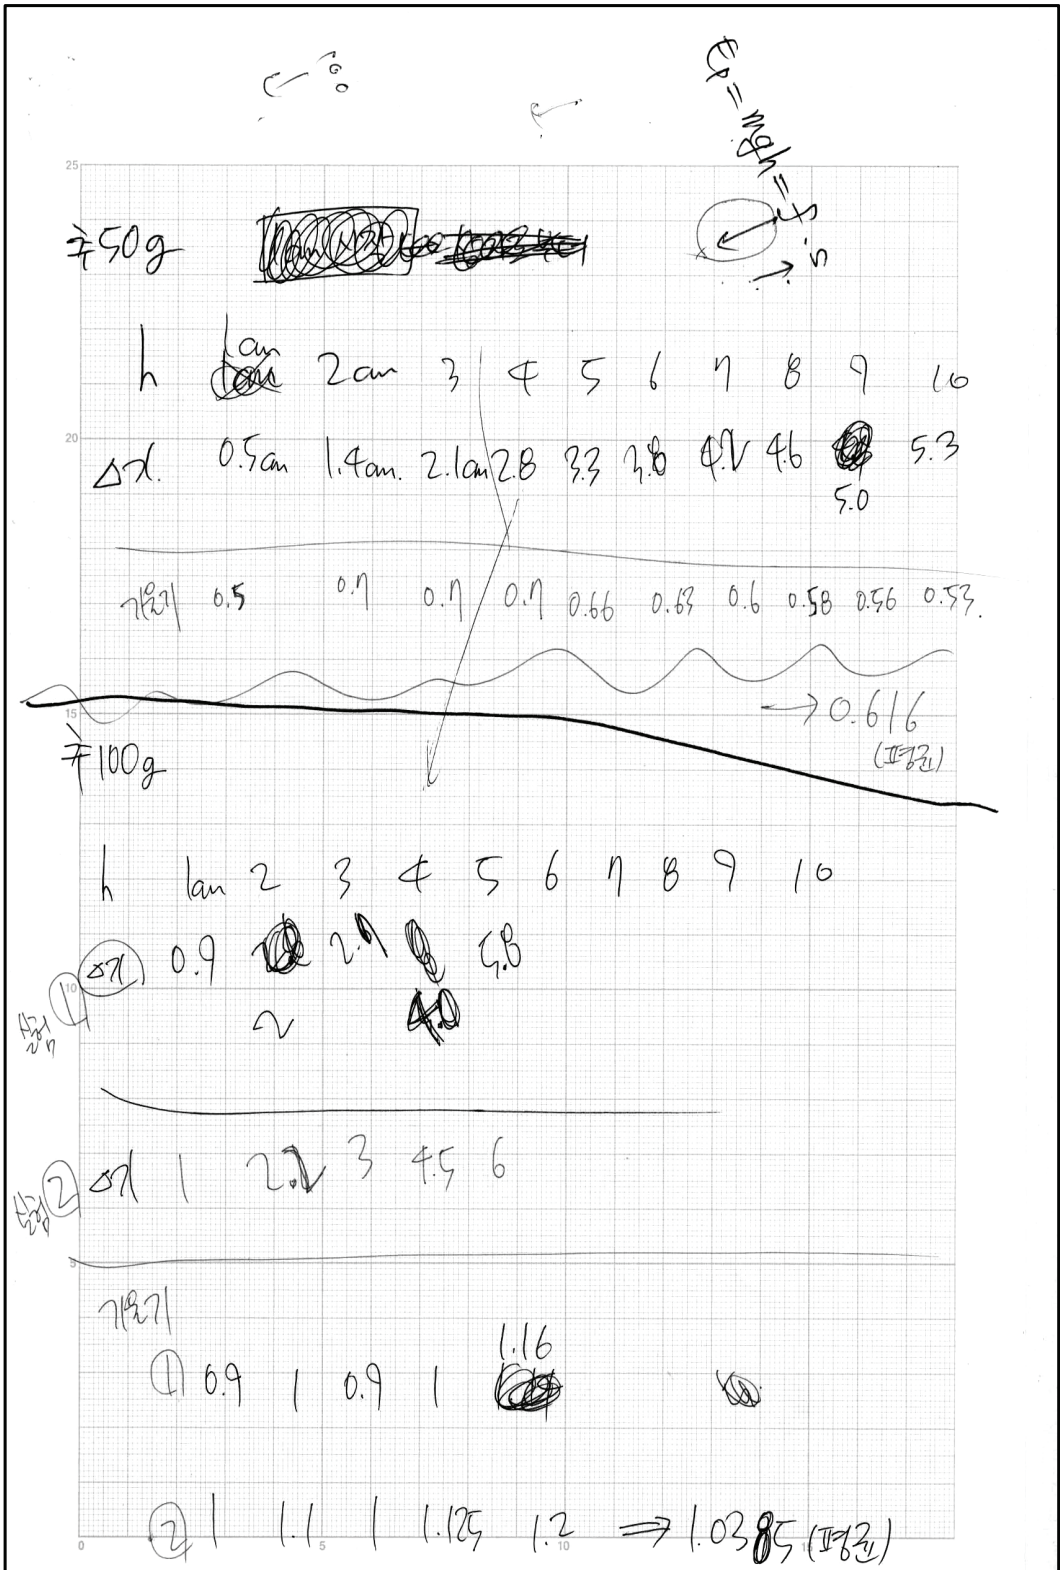 Ep=mgh=f·s
25
추50g
h 1cm 2cm 3 4 5 6 7 8 9 10
20
Δx. 0.5cm 1.4cm. 2.1cm 2.8 3.3 3.8 4.2 4.6 5.3
5.0
기울기 0.5 0.7 0.7 0.7 0.66 0.63 0.6 0.58 0.56 0.53.
15
→0.616
(평균)
추100g
h 1cm 2 3 4 5 6 7 8 9 10
Δx 0.9 2.9 5.8
실험 ① 10
2 4.0
실험 ② Δx 1 2.2 3 4.5 6
5
기울기
1.16
① 0.9 1 0.9 1
② 1 1.1 1 1.125 1.2 ⇒ 1.0385 (평균)
0 5 10 15